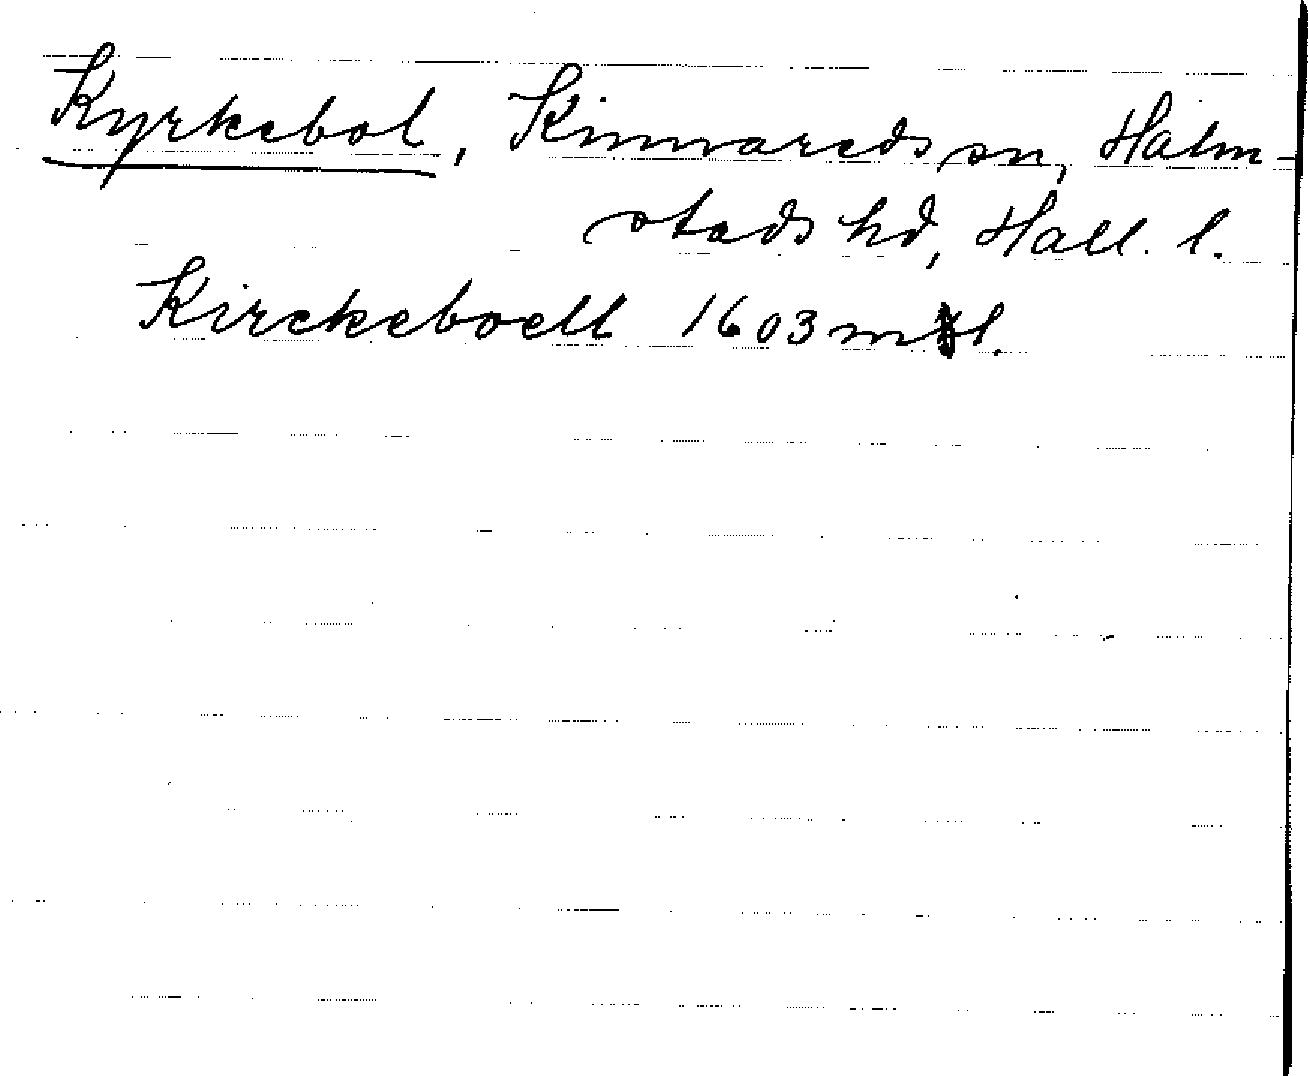 Kyrkebol, Kinnareds sn, Halm-
stads hd, Hall. l.
Kirckeboell 1603 mtl.